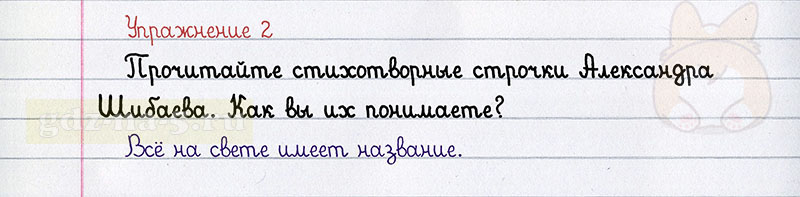 Упражнение 2
Прочитайте стихотворные строчки Александра
Шибаева. Как вы их понимаете?
Всё на свете имеет название.